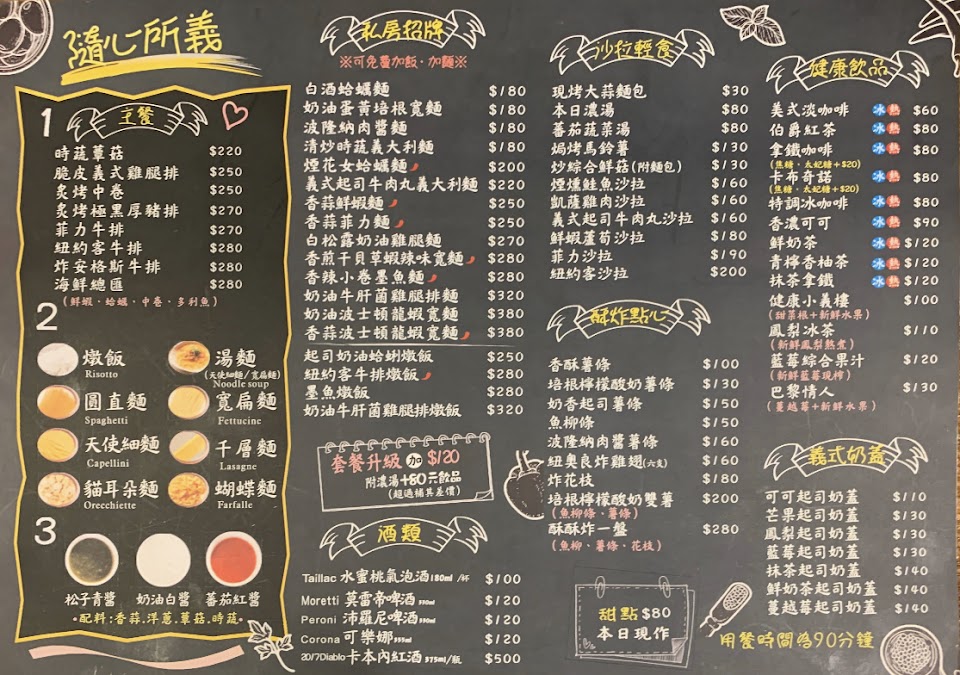 隨心所義
1 主餐
時蔬蕈菇 $220
脆皮義式雞腿排 $250
炙烤中卷 $250
炙烤極黑厚豬排 $270
菲力牛排 $270
紐約客牛排 $280
炸安格斯牛排 $280
海鮮總匯 $280
(鮮蝦、蛤蠣、中卷、多利魚)
2
燉飯 Risotto
湯麵 (天使細麵/寬扁麵) Noodle soup
圓直麵 Spaghetti
寬扁麵 Fettucine
天使細麵 Capellini
千層麵 Lasagne
貓耳朵麵 Orecchiette
蝴蝶麵 Farfalle
3
松子青醬 奶油白醬 蕃茄紅醬
•配料:香蒜.洋蔥.蕈菇.時蔬•
私房招牌
※可免費加飯、加麵※
白酒蛤蠣麵 $180
奶油蛋黃培根寬麵 $180
波隆納肉醬麵 $180
清炒時蔬義大利麵 $180
煙花女蛤蠣麵 $200
義式起司牛肉丸義大利麵 $220
香蒜鮮蝦麵 $250
香蒜菲力麵 $250
白松露奶油雞腿麵 $270
香煎干貝草蝦辣味寬麵 $280
香辣小卷墨魚麵 $280
奶油牛肝菌雞腿排麵 $320
奶油波士頓龍蝦寬麵 $380
香蒜波士頓龍蝦寬麵 $380
起司奶油蛤蜊燉飯 $250
紐約客牛排燉飯 $280
墨魚燉飯 $280
奶油牛肝菌雞腿排燉飯 $320
套餐升級 加 $120
附濃湯+80元飲品
(超過補其差價)
酒類
Taillac 水蜜桃氣泡酒180ml /杯 $100
Moretti 莫雷帝啤酒330ml $120
Peroni 沛羅尼啤酒330ml $120
Corona 可樂娜355ml $120
20/7Diablo卡本內紅酒375ml/瓶 $500
沙拉輕食
現烤大蒜麵包 $30
本日濃湯 $80
蕃茄蔬菜湯 $80
焗烤馬鈴薯 $130
炒綜合鮮菇(附麵包) $130
煙燻鮭魚沙拉 $160
凱薩雞肉沙拉 $160
義式起司牛肉丸沙拉 $160
鮮蝦蘆筍沙拉 $180
菲力沙拉 $190
紐約客沙拉 $200
酥炸點心
香酥薯條 $100
培根檸檬酸奶薯條 $130
奶香起司薯條 $150
魚柳條 $150
波隆納肉醬薯條 $160
紐奧良炸雞翅(六支) $160
炸花枝 $180
培根檸檬酸奶雙薯 $200
(魚柳條、薯條)
酥酥炸一盤 $280
(魚柳、薯條、花枝)
甜點 $80
本日現作
健康飲品
美式淡咖啡 冰 熱 $60
伯爵紅茶 冰 熱 $80
拿鐵咖啡 冰 熱 $80
(焦糖、太妃糖+$20)
卡布奇諾 冰 熱 $80
(焦糖、太妃糖+$20)
特調冰咖啡 $80
香濃可可 冰 熱 $90
鮮奶茶 冰 熱 $120
青檸香柚茶 冰 熱 $120
抹茶拿鐵 冰 熱 $120
健康小義樓 $100
(甜菜根+新鮮水果)
鳳梨冰茶 $110
(新鮮鳳梨熬煮)
藍莓綜合果汁 $120
(新鮮藍莓現榨)
巴黎情人 $130
(蔓越莓+新鮮水果)
義式奶蓋
可可起司奶蓋 $110
芒果起司奶蓋 $130
鳳梨起司奶蓋 $130
藍莓起司奶蓋 $130
抹茶起司奶蓋 $140
鮮奶茶起司奶蓋 $140
蔓越莓起司奶蓋 $140
用餐時間為90分鐘